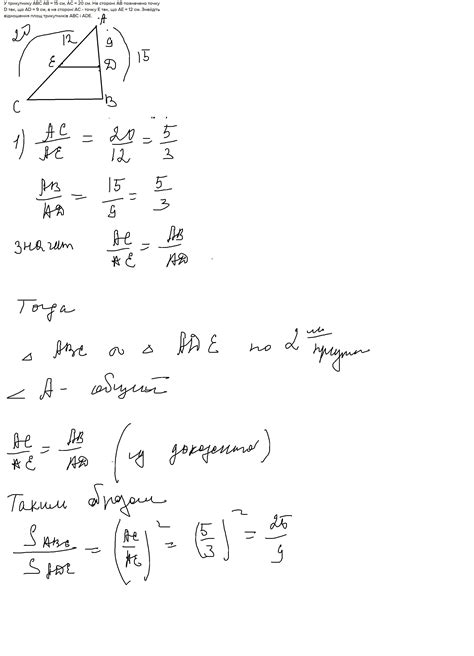 У трикутнику ABC AB = 15 см, AC = 20 см. На стороні AB позначено точку
D так, що AD = 9 см, а на стороні AC - точку E так, що AE = 12 см. Знайдіть
відношення площ трикутників ABC і ADE.
A
20
12
9
E
D
15
C
B
1) AC/AE = 20/12 = 5/3
AB/AD = 15/9 = 5/3
значит AC/AE = AB/AD
Тогда
△ ABC ∾ △ ADE по 2
∠ A - общий
AC/AE = AB/AD (из доказанного)
Таким образом
S ABC / S ADE = (AC/AE)² = (5/3)² = 25/9